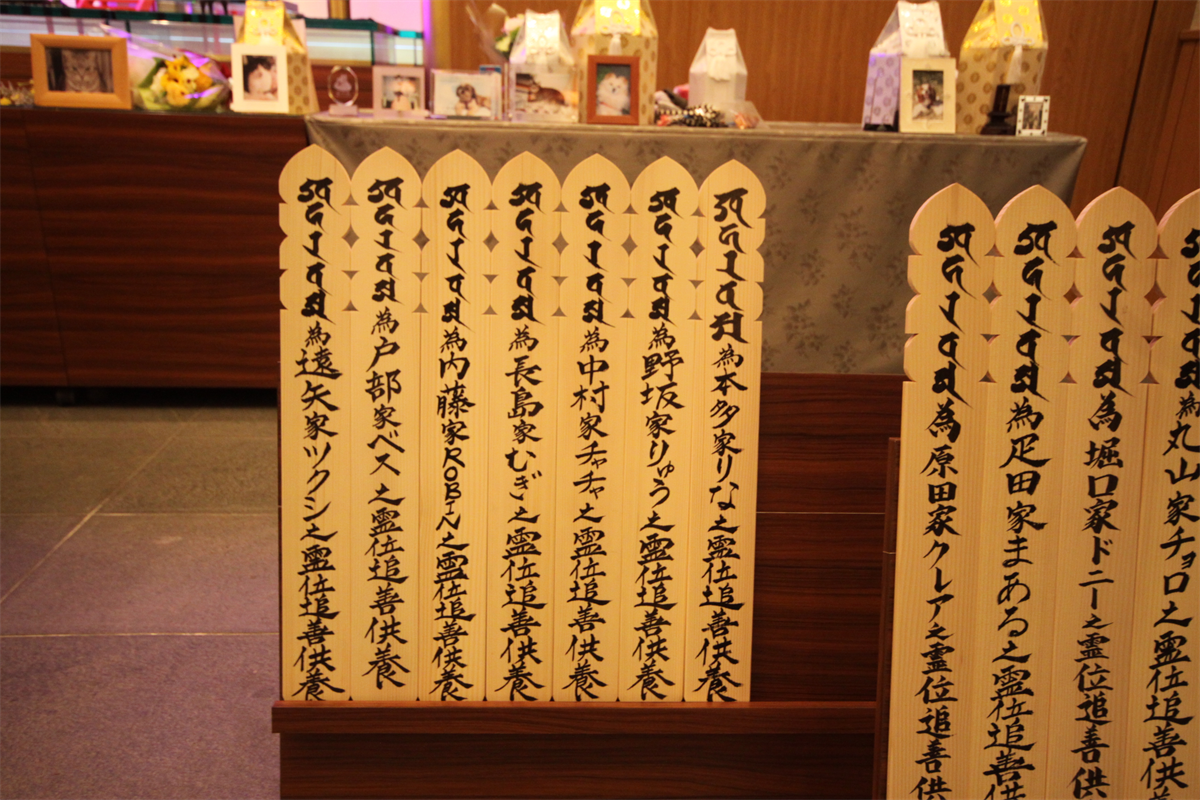 為丸山家チョロ之霊位追善供
為堀口家ドニー之霊位追善供
為疋田家まある之霊位追善供
為原田家クレア之霊位追善供
為本多家りな之霊位追善供養
為野坂家りゅう之霊位追善供養
為中村家チャチャ之霊位追善供養
為長島家むぎ之霊位追善供養
為内藤家ROBIN之霊位追善供養
為戸部家ベス之霊位追善供養
為遠矢家ツクシ之霊位追善供養